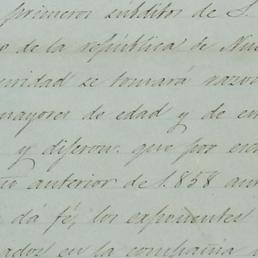 primeros súbditos de S.
de la república de Nue
uridad se tomará razon
mayores de edad y de
y diferon. que por esc
anterior de 1.858 ant
dá fé, los exponentes
ados en la compañia